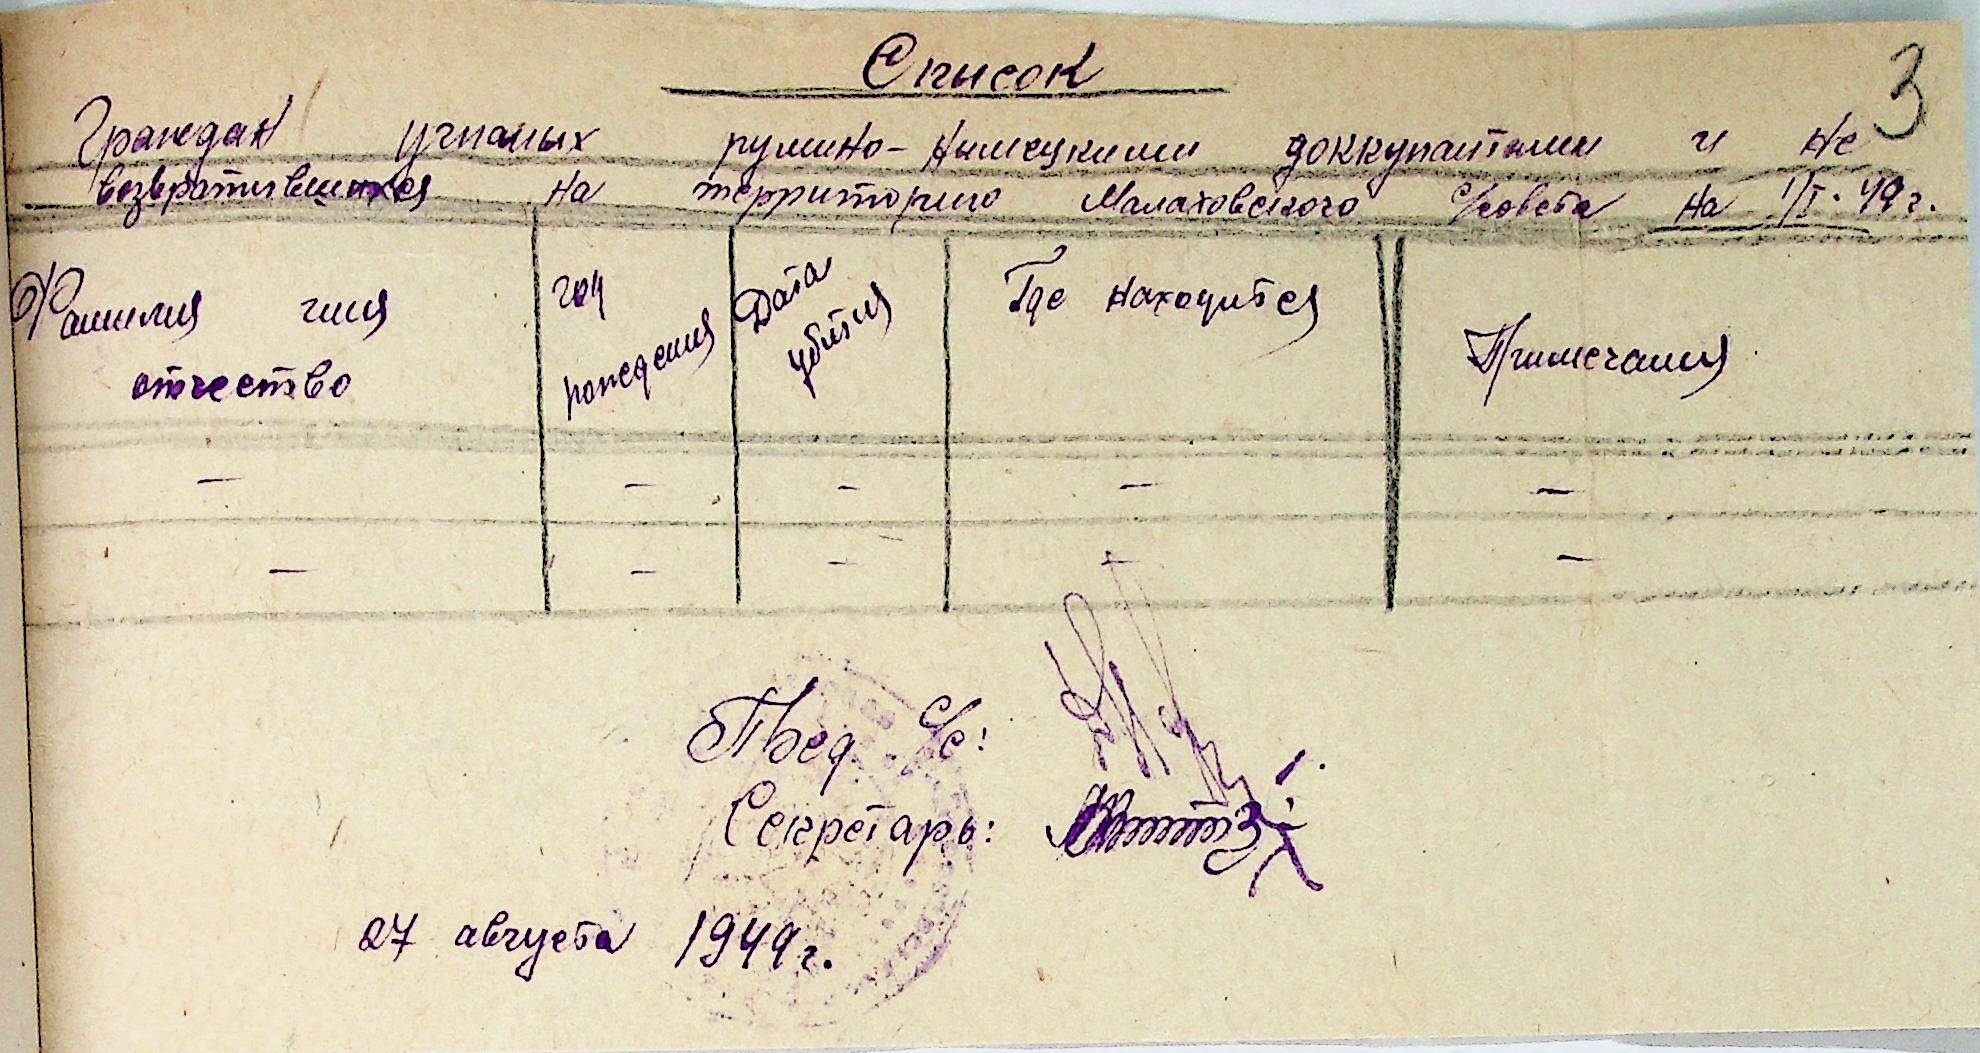 Список
3
Граждан угнаных румыно-нимецкими доккупантами и не
возвратившихся на территорию Малаховского с/совета на 1/I. 49 г.
Фамилия имя
отчество
год
рождения
Дата
убытия
Где находится
Примечания
— — — — —
— — — — —
Пред. с/с:
Секретарь:
27 августа 1949 г.